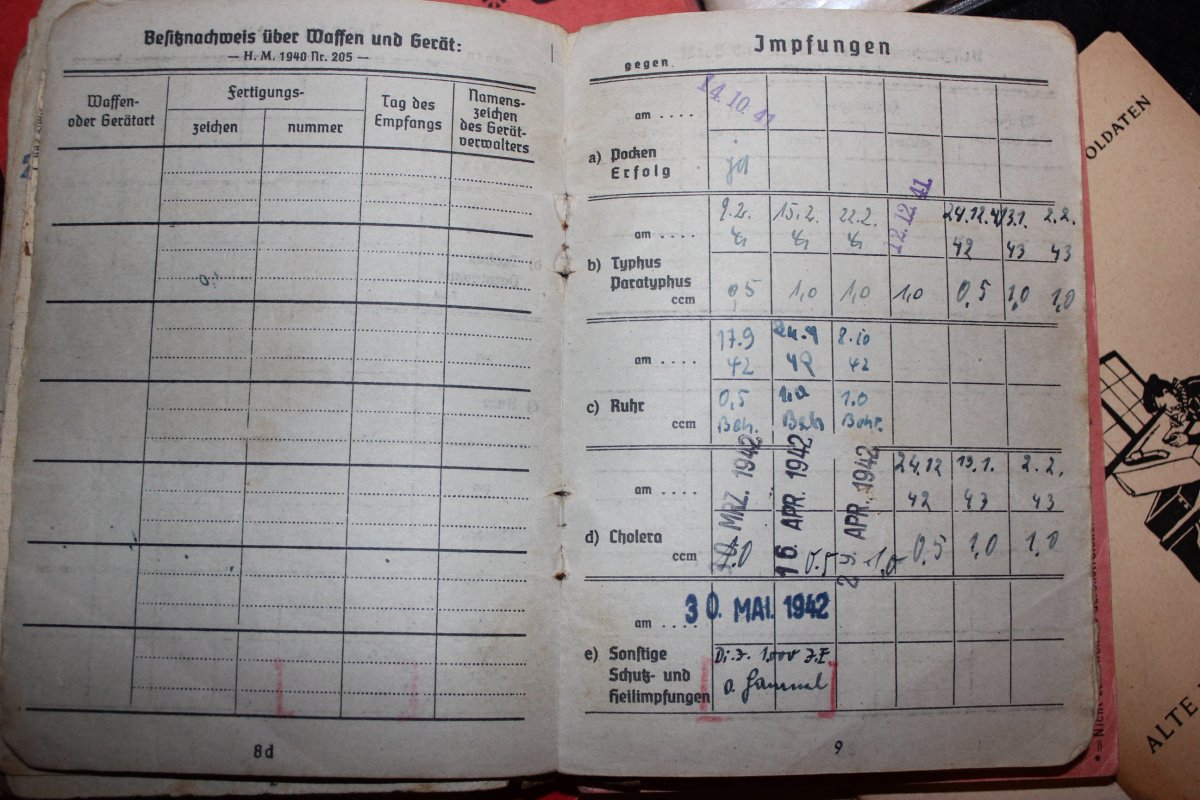 Besitznachweis über Waffen und Gerät:
— H. M. 1940 Nr. 205 —
Waffen-
oder Gerätart
Fertigungs-
zeichen
nummer
Tag des
Empfangs
Namens-
zeichen
des Gerät-
verwalters
8d
Impfungen
gegen
am . . . .
14.10.41
a) Pocken
Erfolg
ja
am . . . .
9.2. 15.2. 22.2. 12.12.41 24.12. 13.1. 2.2.
42 43 43
b) Typhus
Paratyphus
ccm
0,5 1,0 1,0 1,0 0,5 1,0 1,0
am . . . .
17.9 24.9 8.10
42 42 42
c) Ruhr
ccm
0,5 1.0 1.0
Beh. Beh. Behr.
am . . . .
30. MRZ. 1942
16. APR. 1942
29. APR. 1942
24.12 13.1. 2.2.
42 43 43
d) Cholera
ccm
1.0 0.5 1,0 0.5 1,0 1,0
am . . . .
30. MAI. 1942
e) Sonstige
Schutz- und
Heilimpfungen
Di. 1000 J.E
9
OLDATEN
ALTE
* = Nicht